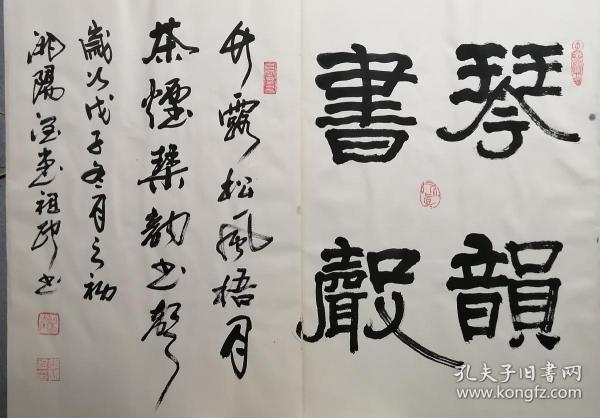 琴韻
書聲
竹露松風梧月
茶煙琴韵书聲
歲次戊子冬月之初
祖
书
孔夫子旧书网
www.kongfz.com